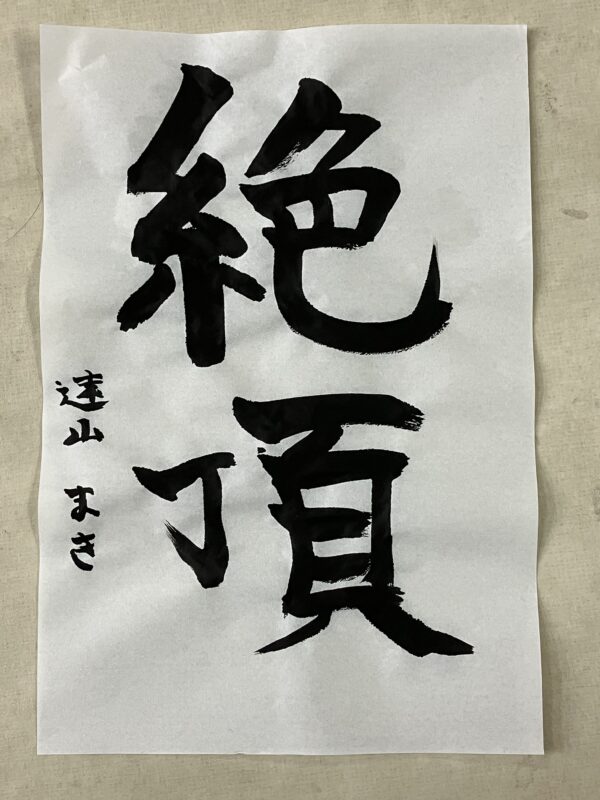 絶頂
遠山 まき